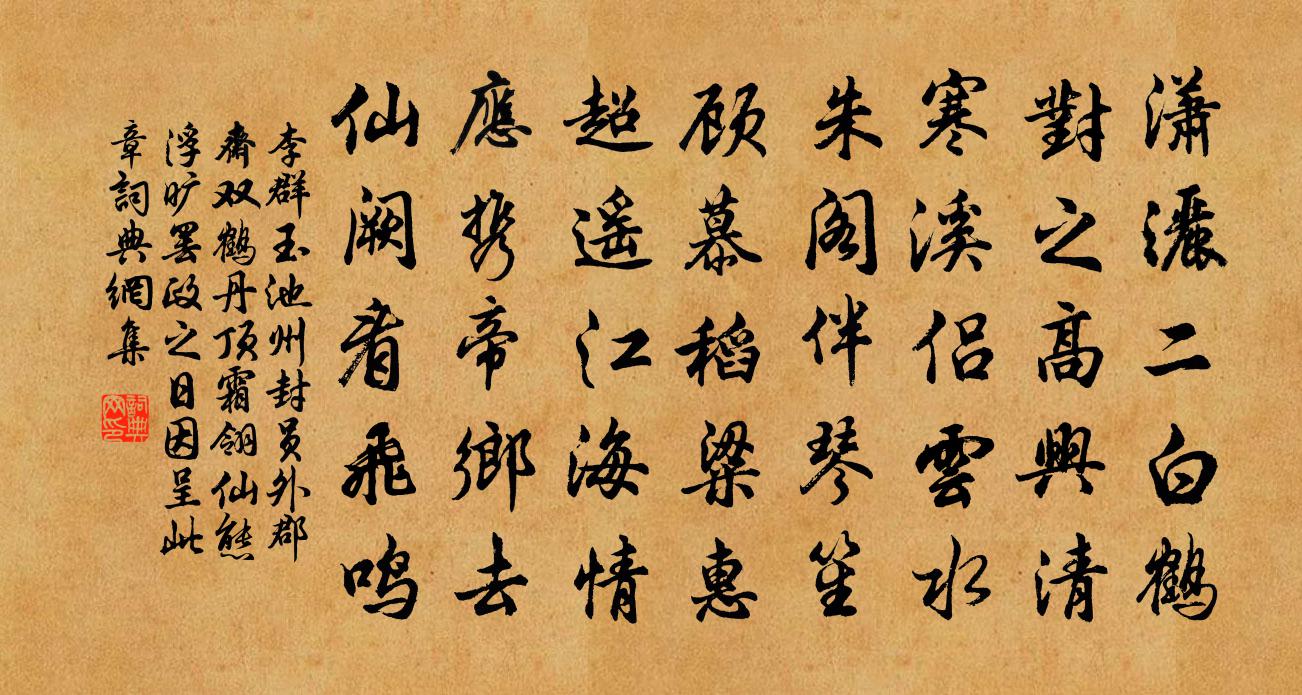 潇灑二白鶴
對之高興清
寒溪侶雲水
朱閣伴琴笙
顾慕稻粱惠
超遥江海情
應携帝鄉去
仙闕看飛鸣
李群玉池州封员外郡
齋双鶴丹頂霜翎仙態
浮旷罢政之日因呈此
章詞典網集
詞典网印